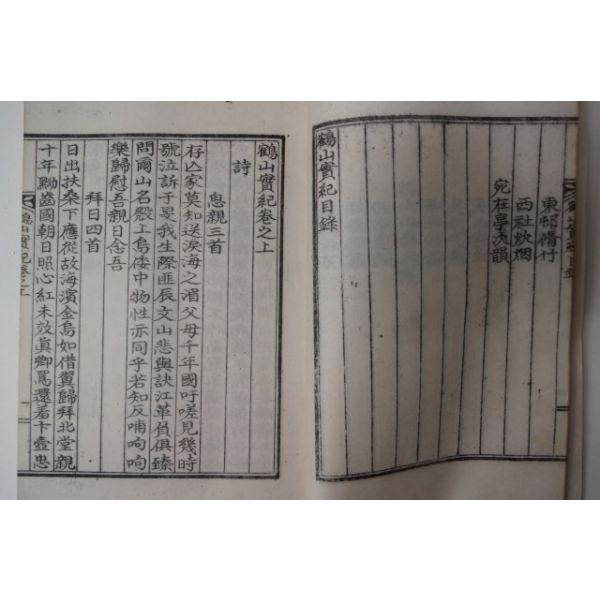 東邨脩竹
西社炊烟
宛在亭次韻
鶴山實紀目錄
鶴山實紀卷之上
詩
思親三首
存亡家莫知送淚海之湄父母千年國吁嗟見幾時
號泣訴于旻我生際匪辰文山悲與訣江革負俱臻
問爾山名殷上烏倭中物性亦同乎若知反哺哅哅
樂歸慰吾親日念吾
拜日四首
日出扶桒下應從故海濱金烏如借翼歸拜北堂親
十年黝齒國朝日照心紅未效眞卿罵還羞卞壼忠
鶴山實紀卷之上
一